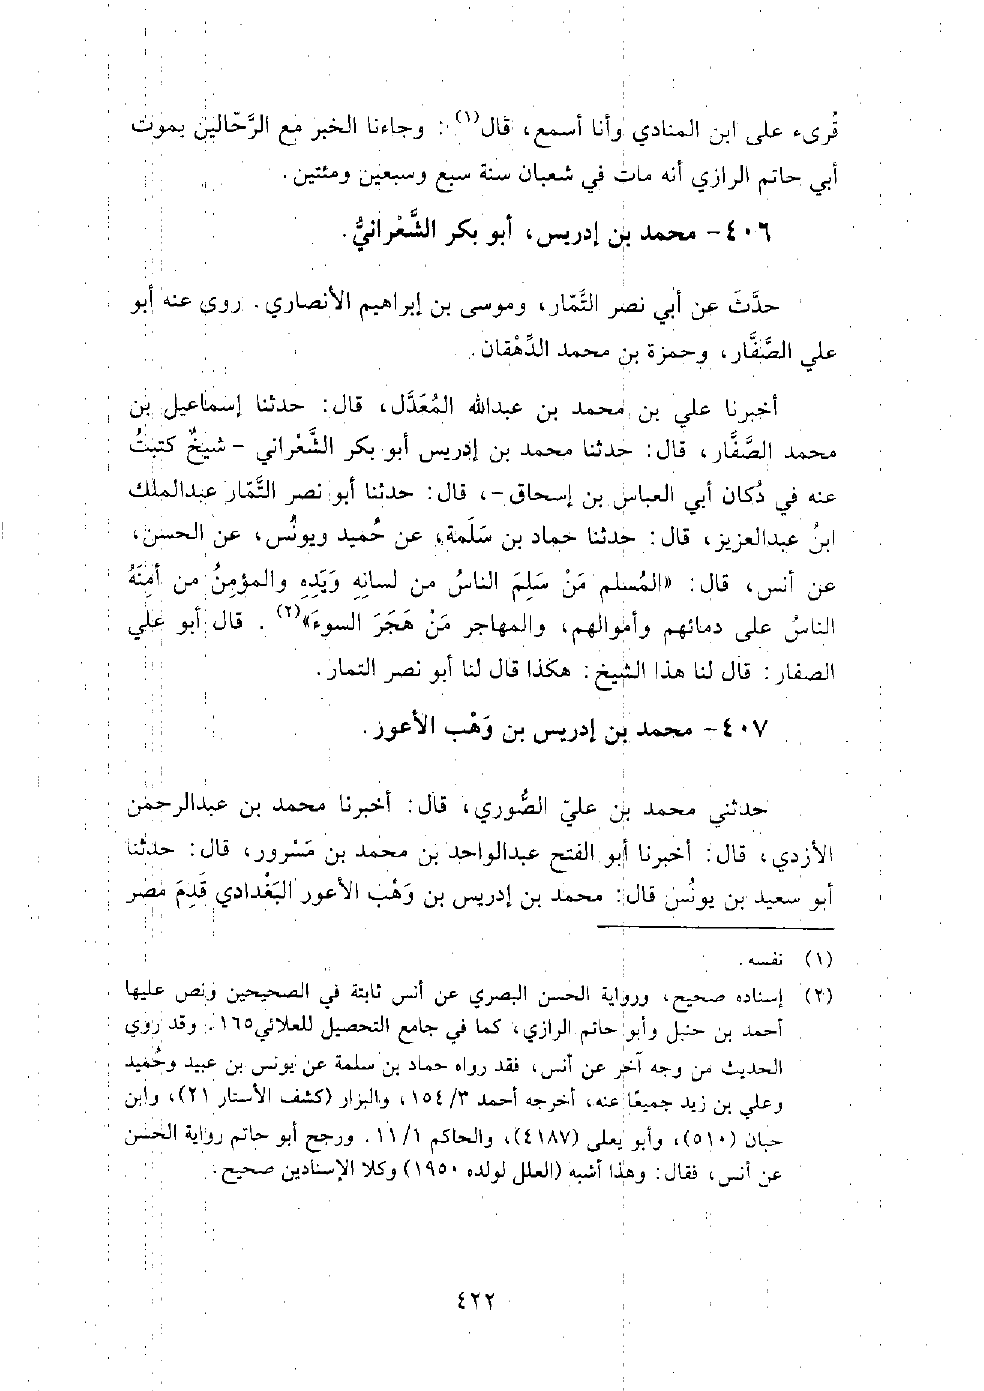 قُرىء على ابن المنادي وأنا أسمع، قال(١): وجاءنا الخبر مع الرَّحّالين بموت
أبي حاتم الرازي أنه مات في شعبان سنة سبع وسبعين ومئتين.
٤٠٦- محمد بن إدريس، أبو بكر الشَّعْرانيُّ.
حدَّثَ عن أبي نصر التَّمّار، وموسى بن إبراهيم الأنصاري. روى عنه أبو
علي الصَّفَّار، وحمزة بن محمد الدِّهْقان.
أخبرنا علي بن محمد بن عبدالله المُعَدَّل، قال: حدثنا إسماعيل بن
محمد الصَّفَّار، قال: حدثنا محمد بن إدريس أبو بكر الشَّعْراني -شيخٌ كتبتُ
عنه في دُكان أبي العباس بن إسحاق-، قال: حدثنا أبو نصر التَّمّار عبدالملك
ابنُ عبدالعزيز، قال: حدثنا حماد بن سَلَمة، عن حُميد ويونُس، عن الحسن،
عن أنس، قال: «المُسلم مَنْ سَلِمَ الناسُ من لسانِهِ وَيَدِهِ والمؤمِنُ من أمِنَهُ
الناسُ على دمائهم وأموالهم، والمهاجر مَنْ هَجَرَ السوءَ»(٢). قال أبو علي
الصفار: قال لنا هذا الشيخ: هكذا قال لنا أبو نصر التمار.
٤٠٧- محمد بن إدريس بن وَهْب الأعور.
حدثني محمد بن عليّ الصُّوري، قال: أخبرنا محمد بن عبدالرحمن
الأزدي، قال: أخبرنا أبو الفتح عبدالواحد بن محمد بن مَسْرور، قال: حدثنا
أبو سعيد بن يونُس قال: محمد بن إدريس بن وَهْب الأعور البَغْدادي قَدِمَ مصر
(١) نفسه.
(٢) إسناده صحيح، ورواية الحسن البصري عن أنس ثابتة في الصحيحين ونص عليها
أحمد بن حنبل وأبو حاتم الرازي، كما في جامع التحصيل للعلائي١٦٥. وقد روي
الحديث من وجه آخر عن أنس، فقد رواه حماد بن سلمة عن يونس بن عبيد وحُميد
وعلي بن زيد جميعًا عنه، أخرجه أحمد ٣/ ١٥٤، والبزار (كشف الأستار ٢١)، وابن
حبان (٥١٠)، وأبو يعلى (٤١٨٧)، والحاكم ١/ ١١. ورجح أبو حاتم رواية الحسن
عن أنس، فقال: وهذا أشبه (العلل لولده ١٩٥٠) وكلا الإسنادين صحيح.
٤٢٢